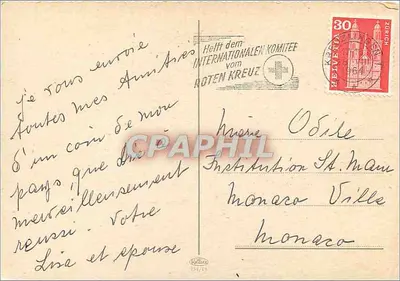 Helft dem
INTERNATIONALEN KOMITEE
vom
ROTEN KREUZ
30
HELVETIA
ZÜRICH
je vous envoie
toutes mes Amitiés
d'un coin de mon
pays que Dieu a
merveilleusement
réussi. Votre
Lisa et épouse
Odile
Institution St. Maur
Monaco Ville
Monaco
CPAPHIL